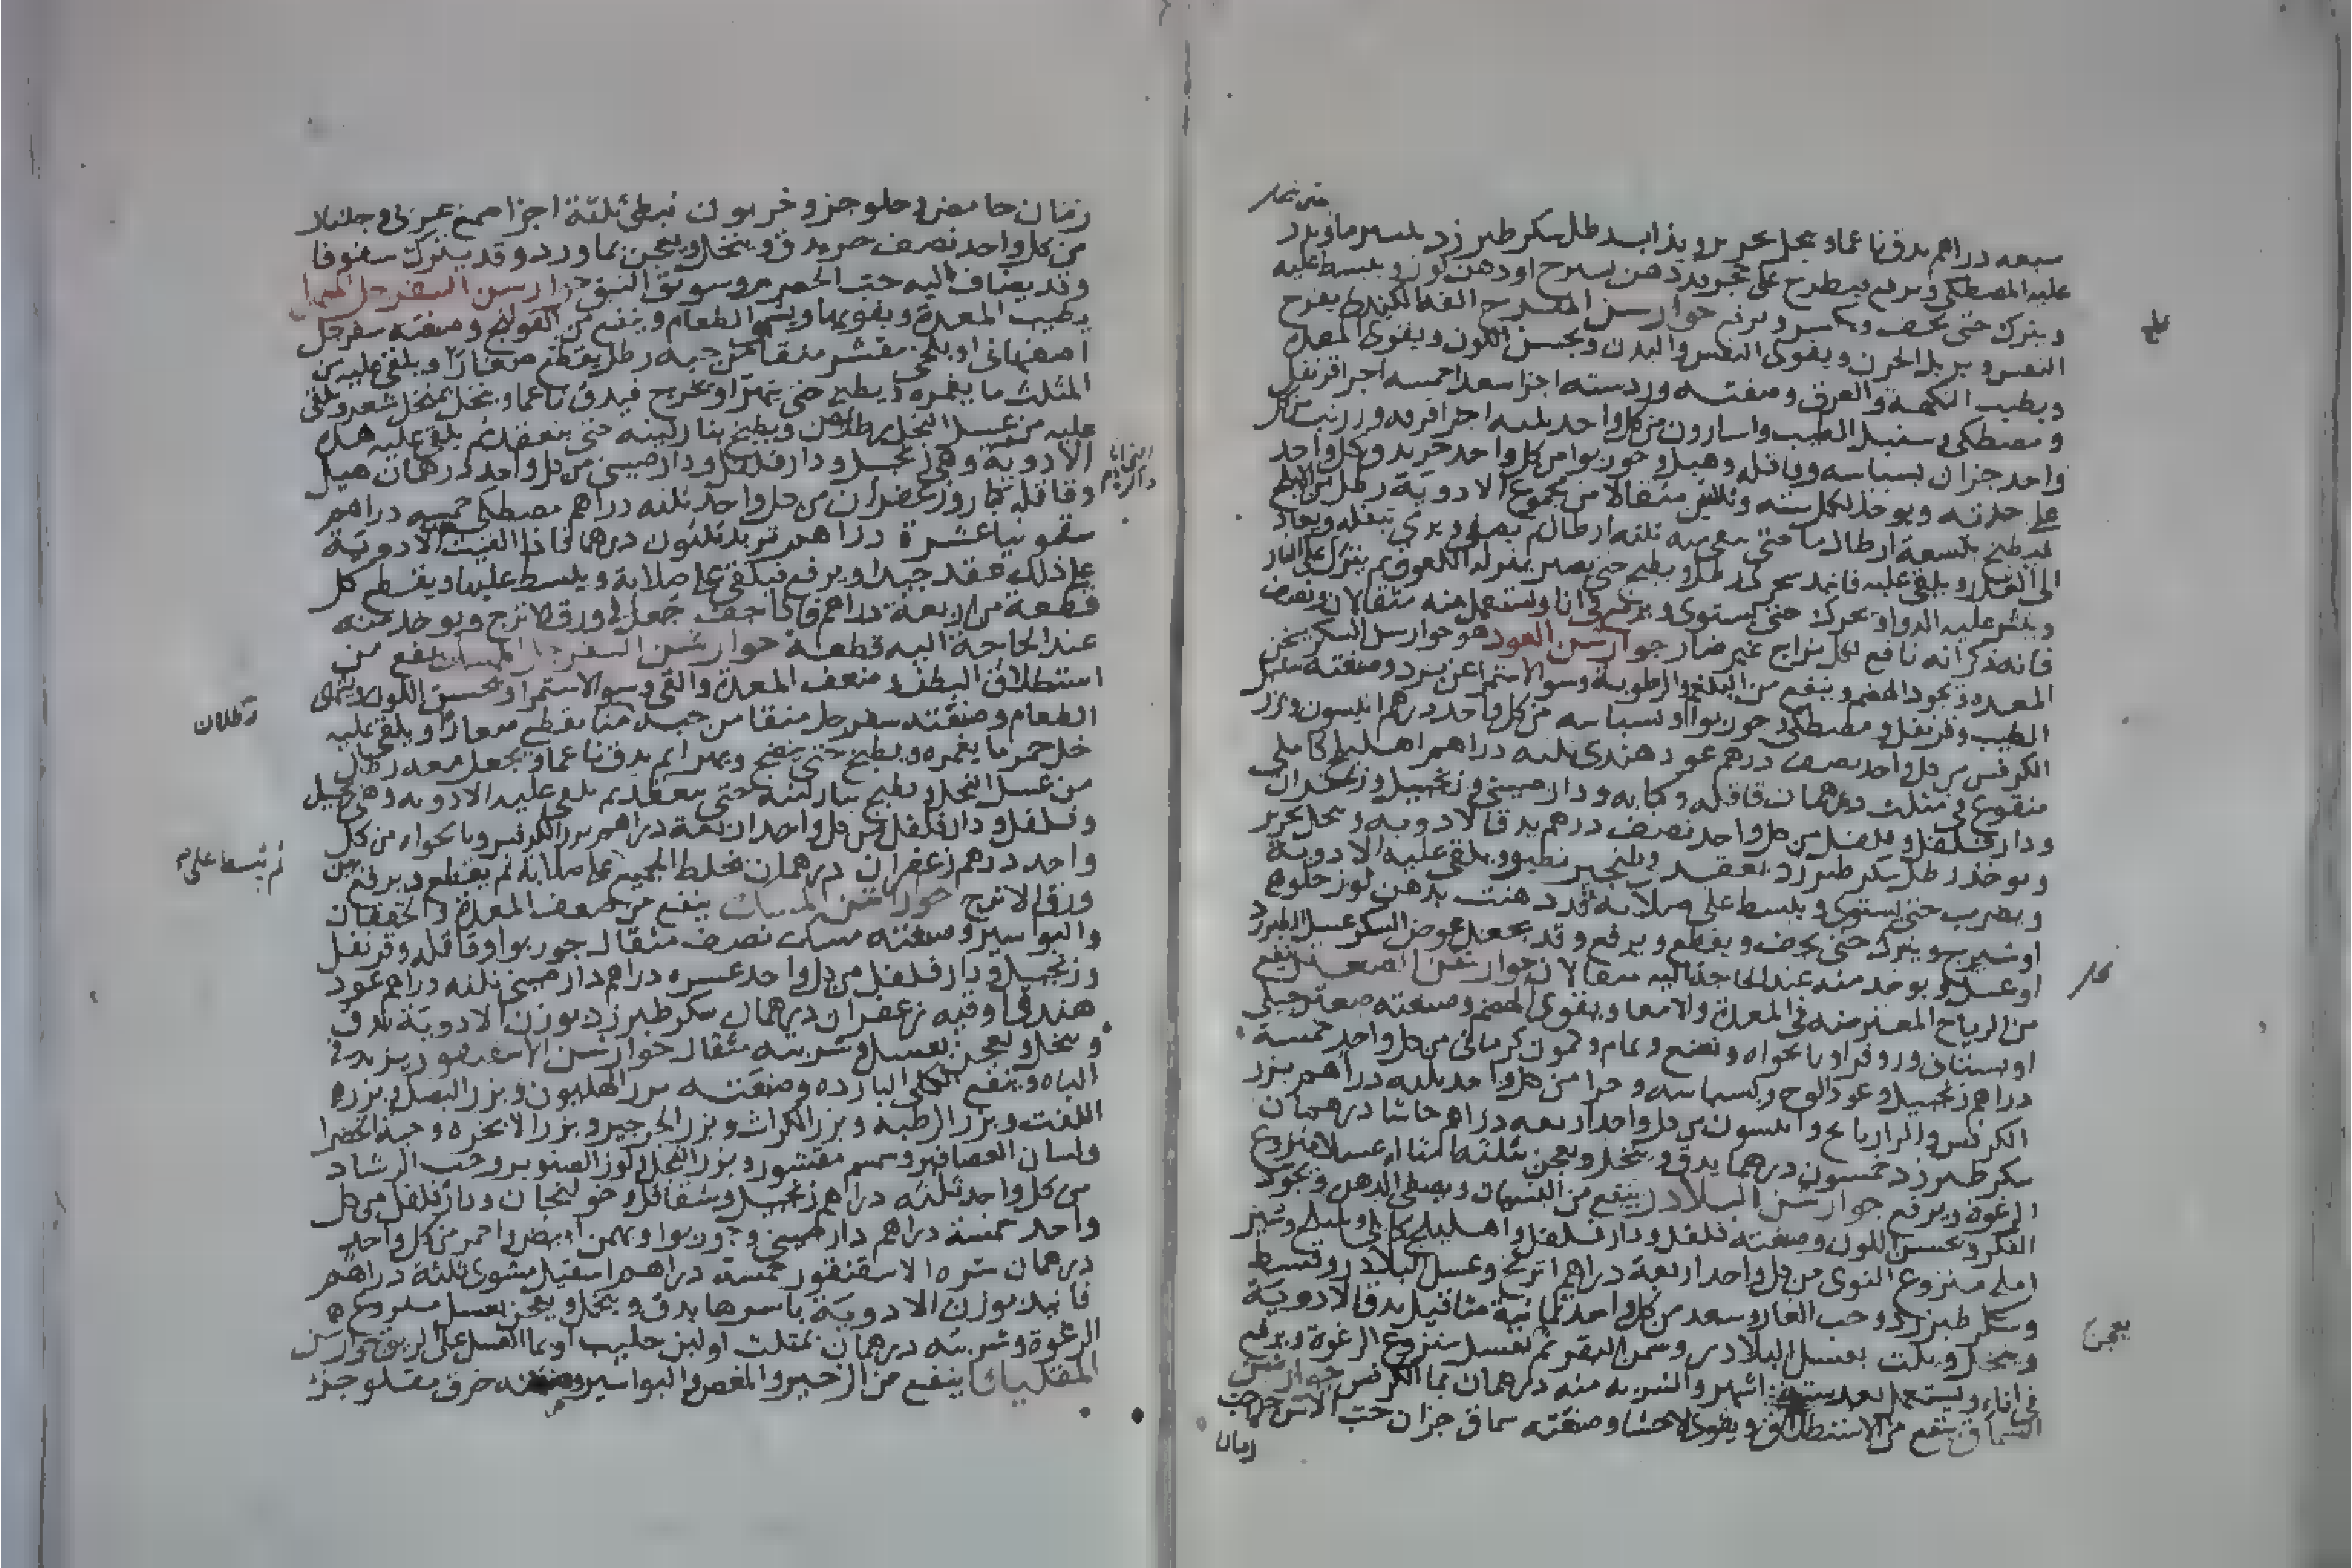 سبعه دراهم يدق ناعما وينخل بحرير ويذاب رطل سكر طبرزد بيسير ماورد
عليه المصطكى ويرفع فيطرح على حجر بدهن شيرج او دهن لوز ويبسط عليه
ويترك حتى يجف ويكسر ويرفع جوارشن المفرح الفه الكندى يفرح
النفس ويزيل الحزن ويقوى النفس والبدن ويحسن اللون ويقوى المعدة
ويطيب النكهة والعرق وصفته ورد ستة اجزا سعد خمسه اجزا قرنفل
ومصطكى وسنبل الطيب واسارون من كل واحد ثلثه اجزا قرفه وزرنب من كل
واحد جزان بسباسه وقاقله وهيل وجوزبوا من كل واحد جز يدق كل واحد
على حدته ويوخذ لكل ستة وثلثين مثقالا من مجموع الادوية رطل من املج
فيطبخ بتسعة ارطال ما حتى يبقى منه ثلثه ارطال ثم يصفى ويرمى بثفله ويعاد
الى القدر ويلقى عليه فانيد سجزى رطل ويطبخ حتى يصير بمنزله اللعوق ثم ينزل عن النار
وينثر عليه الدوا ويحرك حتى يستوى ويرفع فى انا ويستعمل منه مثقالان
فانه ذكر انه نافع لكل مزاج غير ضار جوارشن العود هو جوارشن السكر يسخن
المعده ويجود الهضم وينفع من البلغم والرطوبة وسو الاستمرا عن برد وصفته سنبل
الطيب وقرنفل ومصطكى وجوزبوا وبسباسه من كل واحد درهم انيسون وبزر
الكرفس من كل واحد نصف درهم عود هندى ثلثه دراهم اهليلج كابلى
منقوع فى مثلث درهمان قاقله وكبابه ودارصينى وزنجبيل وزعفران
ودارفلفل وفلفل من كل واحد نصف درهم يدق الادويه وينخل بحرير
ويوخذ رطل سكر طبرزد يعقد فى طنجير نظيف ويلقى عليه الادوية
ويضرب حتى يستوى ويبسط على صلابه قد دهنت بدهن لوز حلو
او شيرج ويترك حتى يجف ويقطع ويرفع وقد يجعل عوض السكر عسل الطبرزد
او عسل ويوخذ منه عند الحاجة اليه مثقالان جوارشن الصعتر ينفع
من الرياح المعترضه فى المعدة والامعا ويقوى الهضم وصفته صعتر جبلى
او بستانى وزوفرا ونانخواه ونعنع ونمام وكمون كرمانى من كل واحد خمسة
دراهم زنجبيل وعود الوج وبسباسه من كل واحد ثلثه دراهم بزر
الكرفس والرازيانج وانيسون من كل واحد اربعه دراهم حاشا درهمان
سكر طبرزد خمسون درهما يدق وينخل ويعجن بثلثة امثاله عسلا منزوع
الرغوة ويرفع جوارشن البلادر ينفع من النسيان ويصفى الذهن ويجود
الفكر ويحسن اللون وصفته فلفل ودارفلفل واهليلج كابلى وبليلج وشير
املج منزوع النوى من كل واحد اربعة دراهم وعسل البلادر وقسط
وسكر طبرزد وحب الغار وسعد من كل واحد ثمانية مثاقيل يدق الادوية
وينخل ويلت بعسل البلادر وسمن البقر ثم بعسل منزوع الرغوة ويرفع
فى اناء ويستعمل بعد ستة اشهر والشربه منه درهمان بما الكرفس جوارشن
السماق ينفع من الاستطلاق ويقوى الاحشا وصفته سماق جزان حب الاس جز حب
رمان
يعجن
رمان حامض وحلو جز وخرنوب نبطى ثلثة اجزا صمغ عربى وجلنار
من كل واحد نصف جز يدق وينخل ويعجن بما ورد وقد يترك سفوفا
وقد يضاف اليه حب الحصرم وسويق النبق جوارشن السفرجل المسهل
يطيب المعدة ويقويها ويشهى الطعام وينفع من القولنج وصفته سفرجل
اصفهانى او بلخى مقشر منقا من حبه رطل يقطع صغارا ويلقى عليه من
المثلث ما يغمره ويطبخ حتى يتهرا ويخرج فيدق ناعما وينخل بمنخل شعر ويلقى
عليه من عسل النحل رطلان ويطبخ بنار لينه حتى ينعقد ثم يلقى عليه هذه
الادوية وهى زنجبيل ودارفلفل ودارصينى من كل واحد درهمان هيل
وقاقله كبار وزعفران من كل واحد ثلثه دراهم مصطكى خمسه دراهم
سقمونيا عشرة دراهم تربد ثلثون درهما فاذا القيت الادوية
على ذلك عقد جيدا ويرفع فيلقى على صلابة ويبسط عليها ويقسط كل
قطعة من اربعة دراهم فاذا جف جعل فى ورق الاترج ويوخذ منه
عند الحاجة اليه قطعة جوارشن السفرجل الممسك ينفع من
استطلاق البطن وضعف المعدة والقى وسو الاستمرا ويحسن اللون ويشهى
الطعام وصفته سفرجل منقا من حبه منا يقطع صغارا ويلقى عليه
خل خمر ما يغمره ويطبخ حتى ينضج ويهرا ثم يدق ناعما ويجعل معه رطل
من عسل النحل ويطبخ بنار لينه حتى ينعقد ثم يلقى عليه الادويه وهى زنجبيل
وفلفل ودارفلفل من كل واحد اربعة دراهم بزر الكرفس ونانخواه من كل
واحد درهم زعفران درهمان يخلط الجميع على صلابة ثم يقطع ويرفع بين
ثم يبسط على
ورق الاترج جوارشن المسك ينفع من ضعف المعدة والخفقان
والبواسير وصفته مسك نصف مثقال جوزبوا وقاقله وقرنفل
وزنجبيل ودارفلفل من كل واحد عشره دراهم دارصينى ثلثه دراهم عود
هندى اوقيه زعفران درهمان سكر طبرزد بوزن الادوية يدق
وينخل ويعجن بعسل وشربته مثقال جوارشن الاسقنقور يزيد فى
الباه وينفع الكلى البارده وصفته بزر الهليون وبزر البصل وبزر
اللفت وبزر الرطبه وبزر الكراث وبزر الجرجير وبزر الانجره وحبة الخضرا
ولسان العصافير وسمسم مقشور وبزر الفجل ولوز الصنوبر وحب الرشاد
من كل واحد ثلثه دراهم زنجبيل وشقاقل وخولنجان ودارفلفل من كل
واحد خمسة دراهم دارصينى وجوزبوا وبهمن ابيض واحمر من كل واحد
درهمان سره الاسقنقور خمسة دراهم اسقيل مشوى ثلثة دراهم
فانيذ بوزن الادوية باسرها يدق وينخل ويعجن بعسل منزوع
الرغوة وشربته درهمان بمثلث او لبن حليب او بما العسل على الريق جوارشن
المقلياثا ينفع من الزحير والمغص والبواسير وصفته حرف مقلو جز